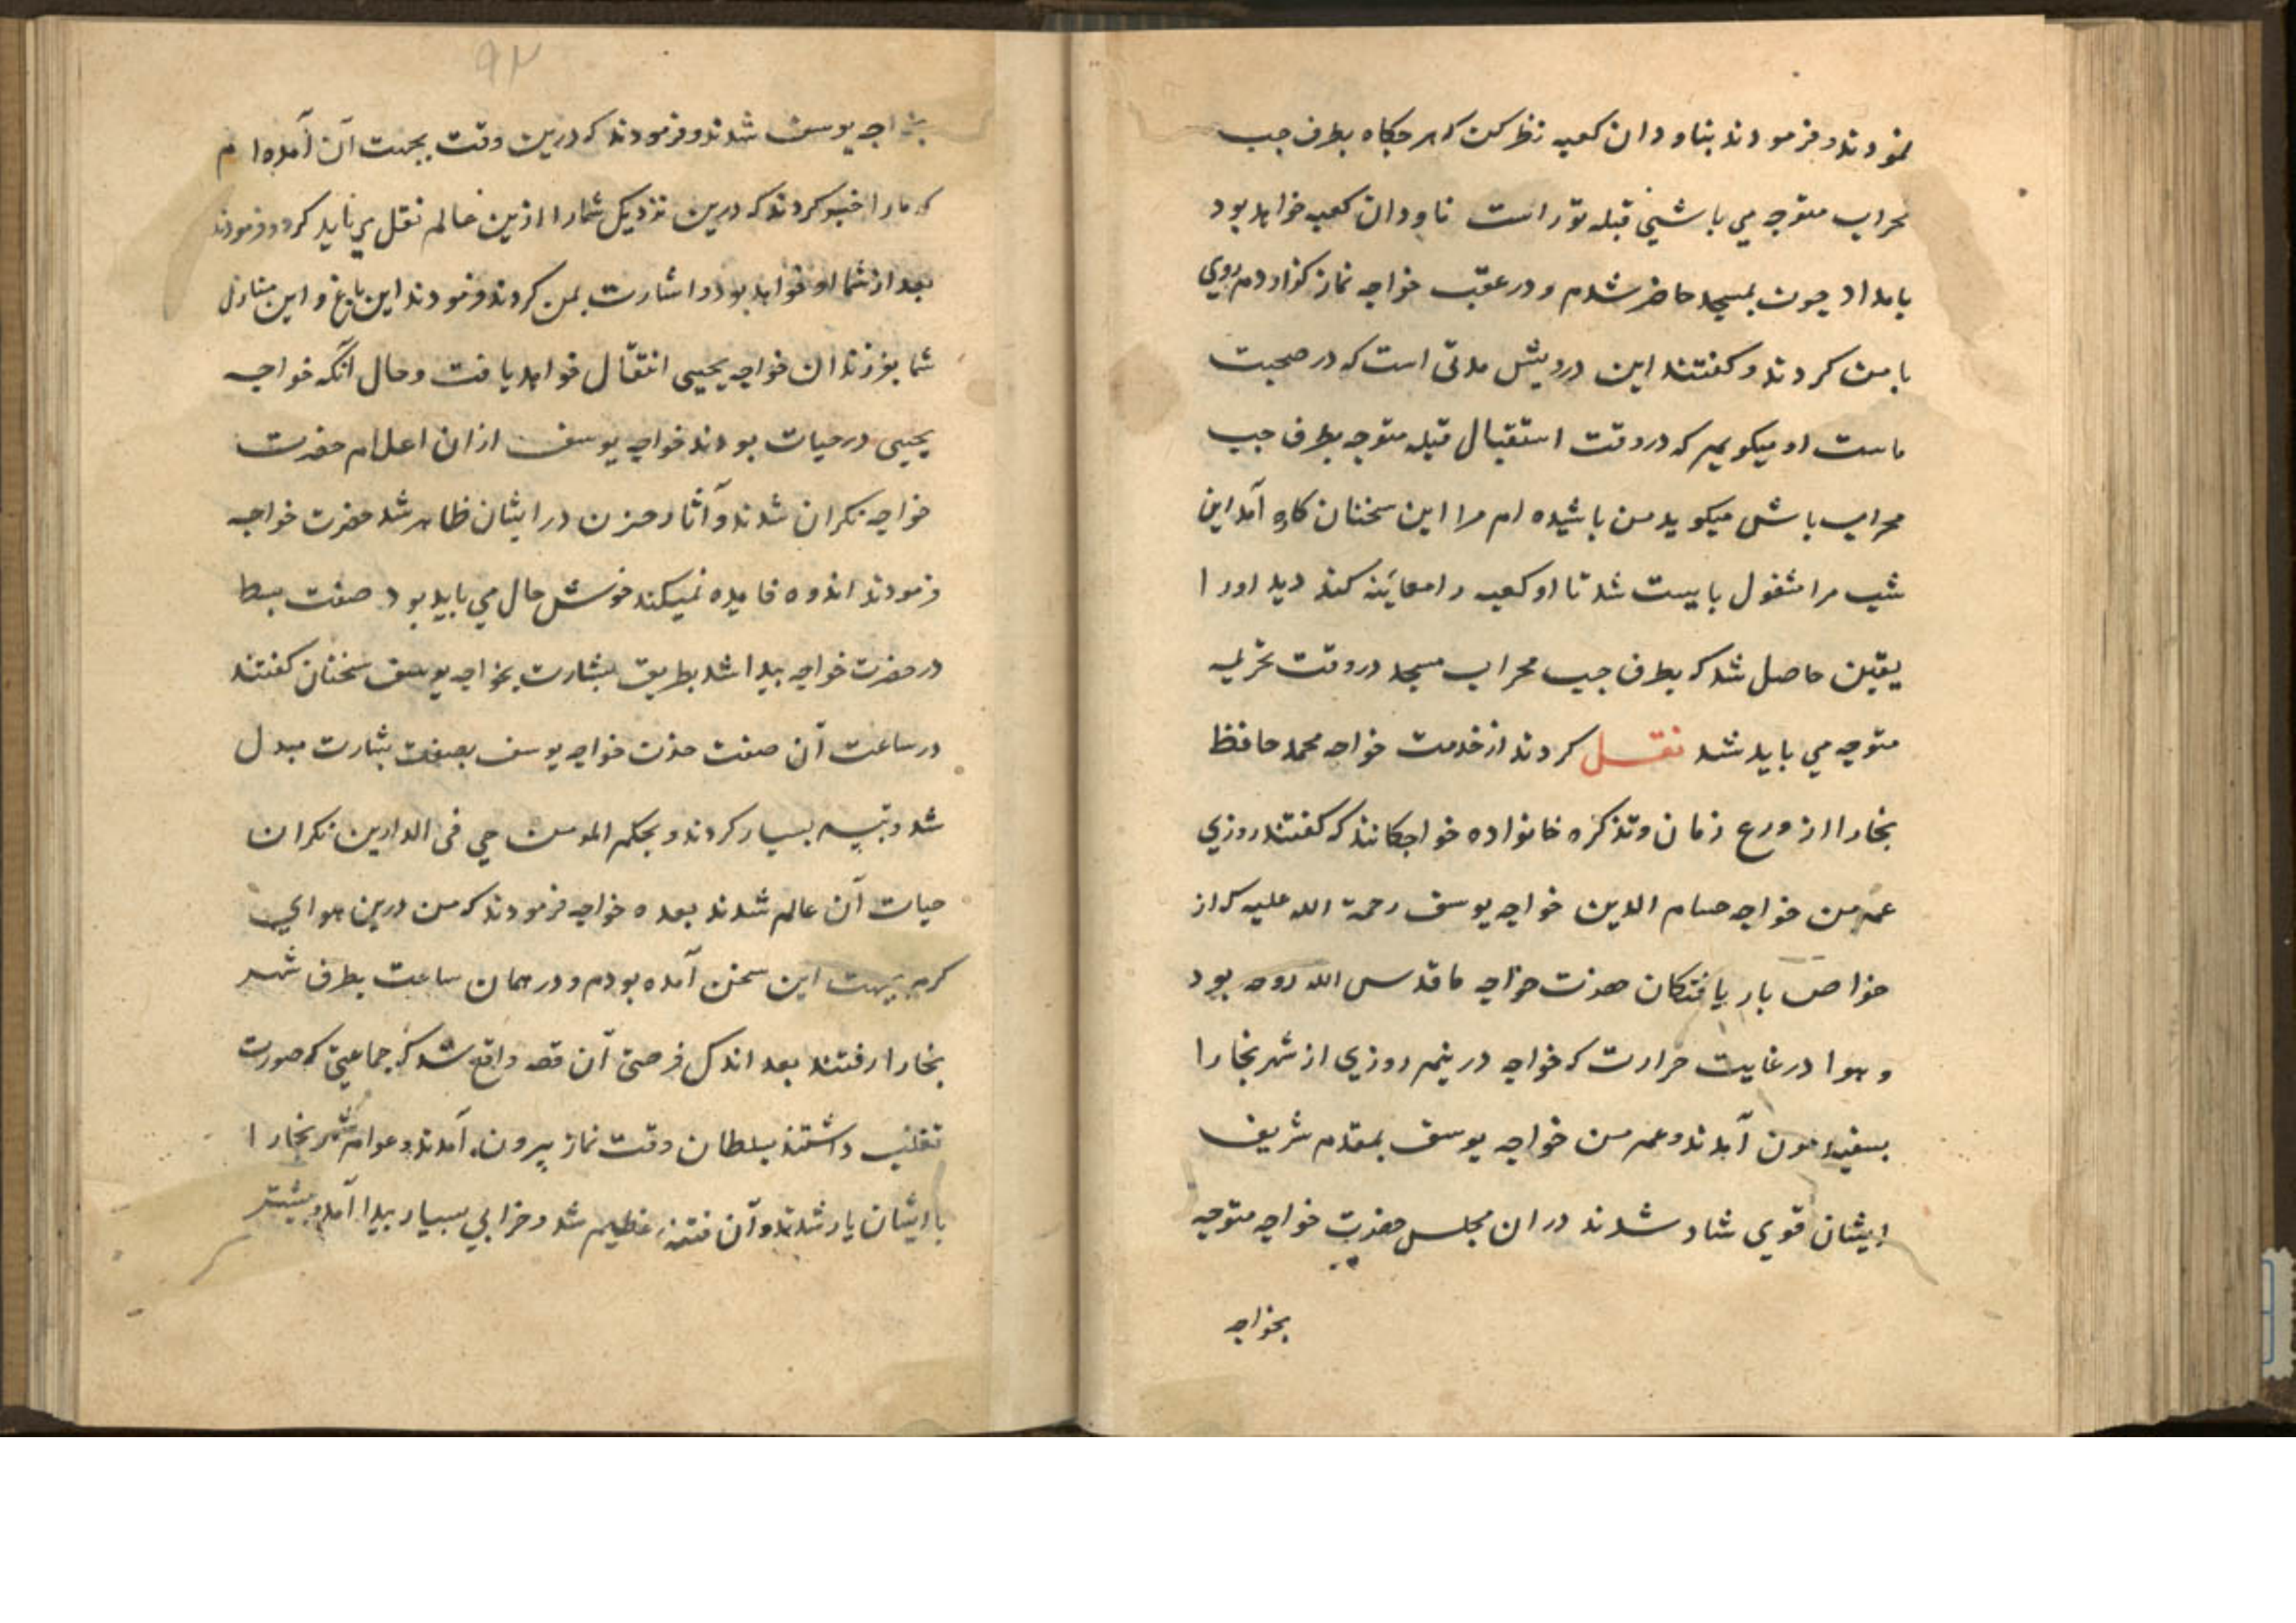 نمودند و فرمودند بناودان کعبه نظر کن که هرکاه بطرف جب
محراب متوجه می باشینی قبله تو راست ناودان کعبه خواهد بود
بامداد جون بمسجد حاضر شدم و در عقب خواجه نماز کزاردم روی
بامن کردند و کفتند این درویش مدتی است که در صحبت
ماست او میکویم که در وقت استقبال قبله متوجه بطرف جب
محراب باش میکوید من باشیده ام مرا این سخنان کاره آمد این
شب مرا مشغول بایست شد تا او کعبه را معاینه کند دید اورا
یقین حاصل شد که بطرف جب محراب مسجد در وقت تحریمه
متوجه می باید شد نقل کردند از خدمت خواجه محمد حافظ
بخارا از ورع زمان و تذکره خانواده خواجکانند که کفتند روزی
عمه من خواجه حسام الدین خواجه یوسف رحمة الله علیه که از
خواص بار یافتکان حضرت خواجه ما قدس الله روحه بود
و هوا در غایت حرارت که خواجه در نیم روزی از شهر بخارا
بسفیدمون آمدند و عمه من خواجه یوسف بمقدم شریف
ایشان قوی شاد شدند در ان مجلس حضرت خواجه متوجه
بخواجه
۹۲
بخواجه یوسف شدند و فرمودند که درین وقت بجهت آن آمده ام
که مارا خبر کردند که درین نزدیکی شمارا ازین عالم نقل می باید کرد و فرمودند
بعد از شما او خواهد بود و اشارت بمن کردند و فرمودند این باغ و این منازل
شما بفرزندان خواجه یحیی انتقال خواهد یافت و حال آنکه خواجه
یحیی در حیات بودند خواجه یوسف ازان اعلام حضرت
خواجه نکران شدند و آثار حزن در ایشان ظاهر شد حضرت خواجه
فرمودند اندوه فایده نمیکند خوش حال می باید بود صفت بسط
در حضرت خواجه بیدا شد بطریق بشارت بخواجه یوسف سخنان کفتند
در ساعت آن صفت حزن خواجه یوسف بصفت بشارت مبدل
شد و تبسم بسیار کردند و بحکم المومن حی فی الدارین نکران
حیات آن عالم شدند بعده خواجه فرمودند که من درین هوای
کرم بجهت این سخن آمده بودم و در همان ساعت بطرف شهر
بخارا رفتند بعد اندک فرصتی آن قصه واقع شد که جماعتی که صورت
تغلب داشتند بسلطان وقت نماز بیرون آمدند و عوام شهر بخارا
با ایشان یار شدند و آن فتنه عظیم شد و خرابی بسیار بیدا آمد و بیشتر